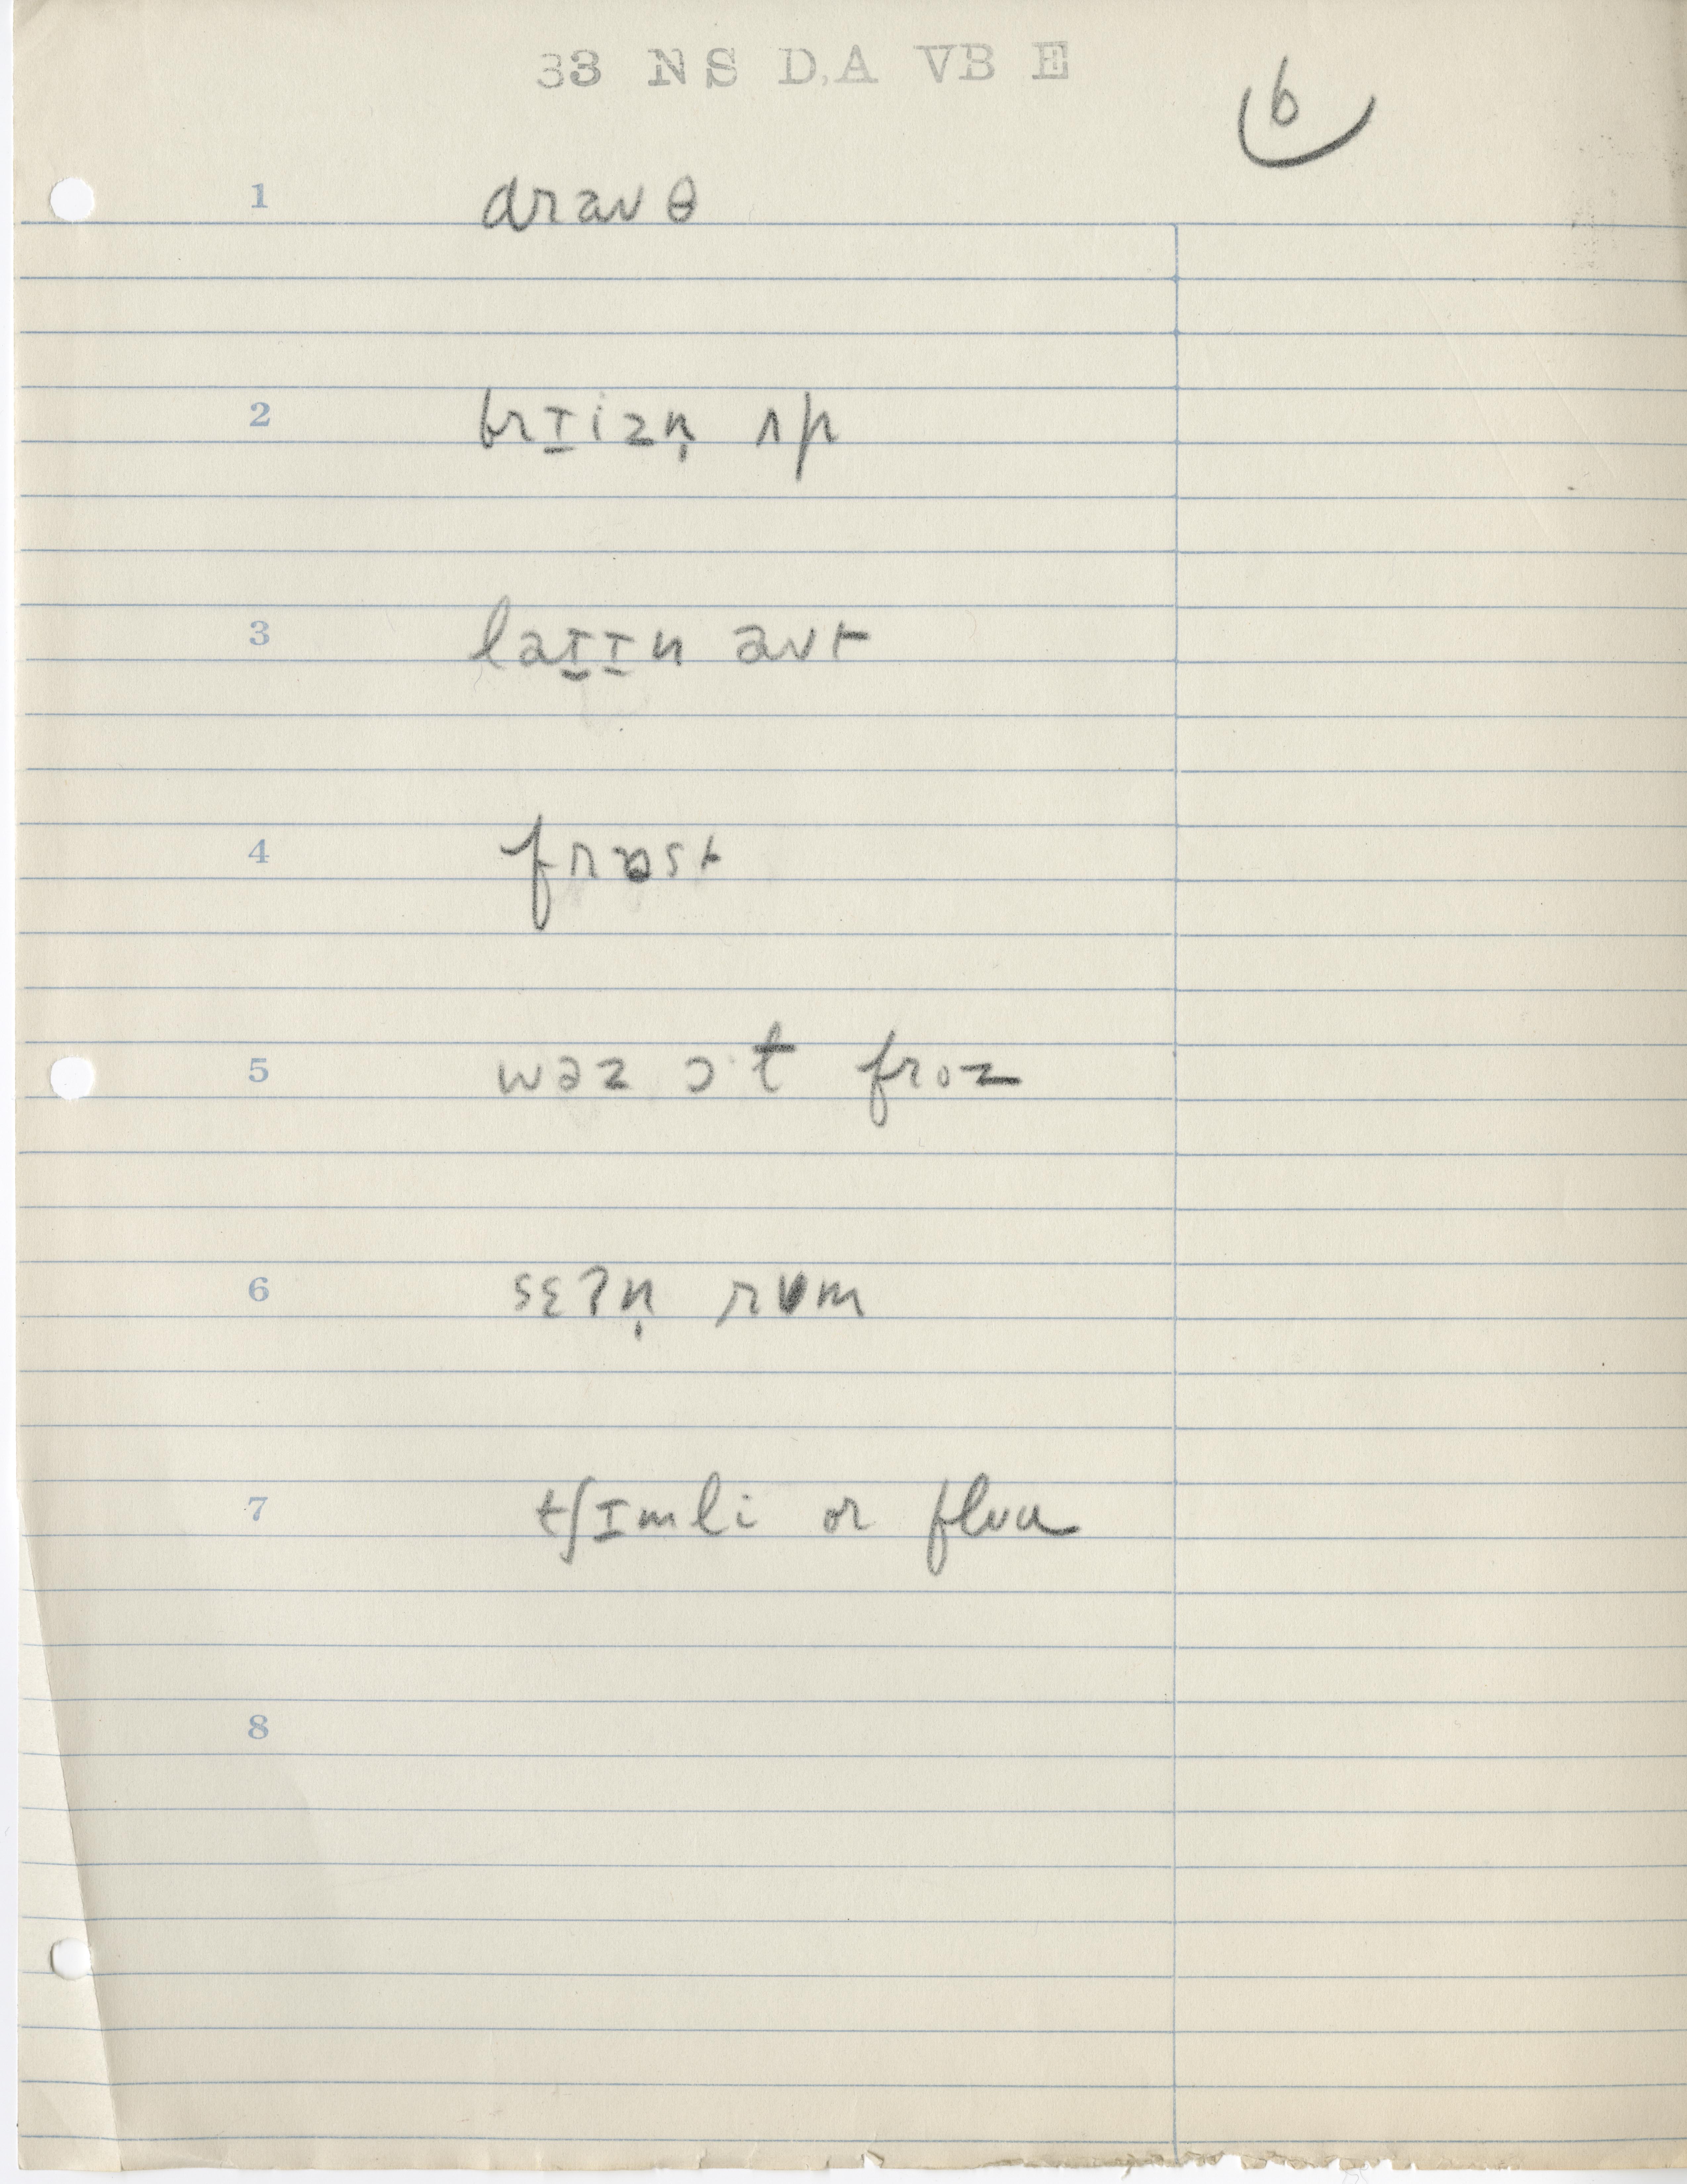 33 NS D,A VB E
6
1 draʊθ
2 brɪizn̩ ʌp
3 laɪɪn aʊt
4 frɒst
5 wəz ɔt froz
6 sɛʔn̩ rʊm
7 tʃɪmli or flua
8